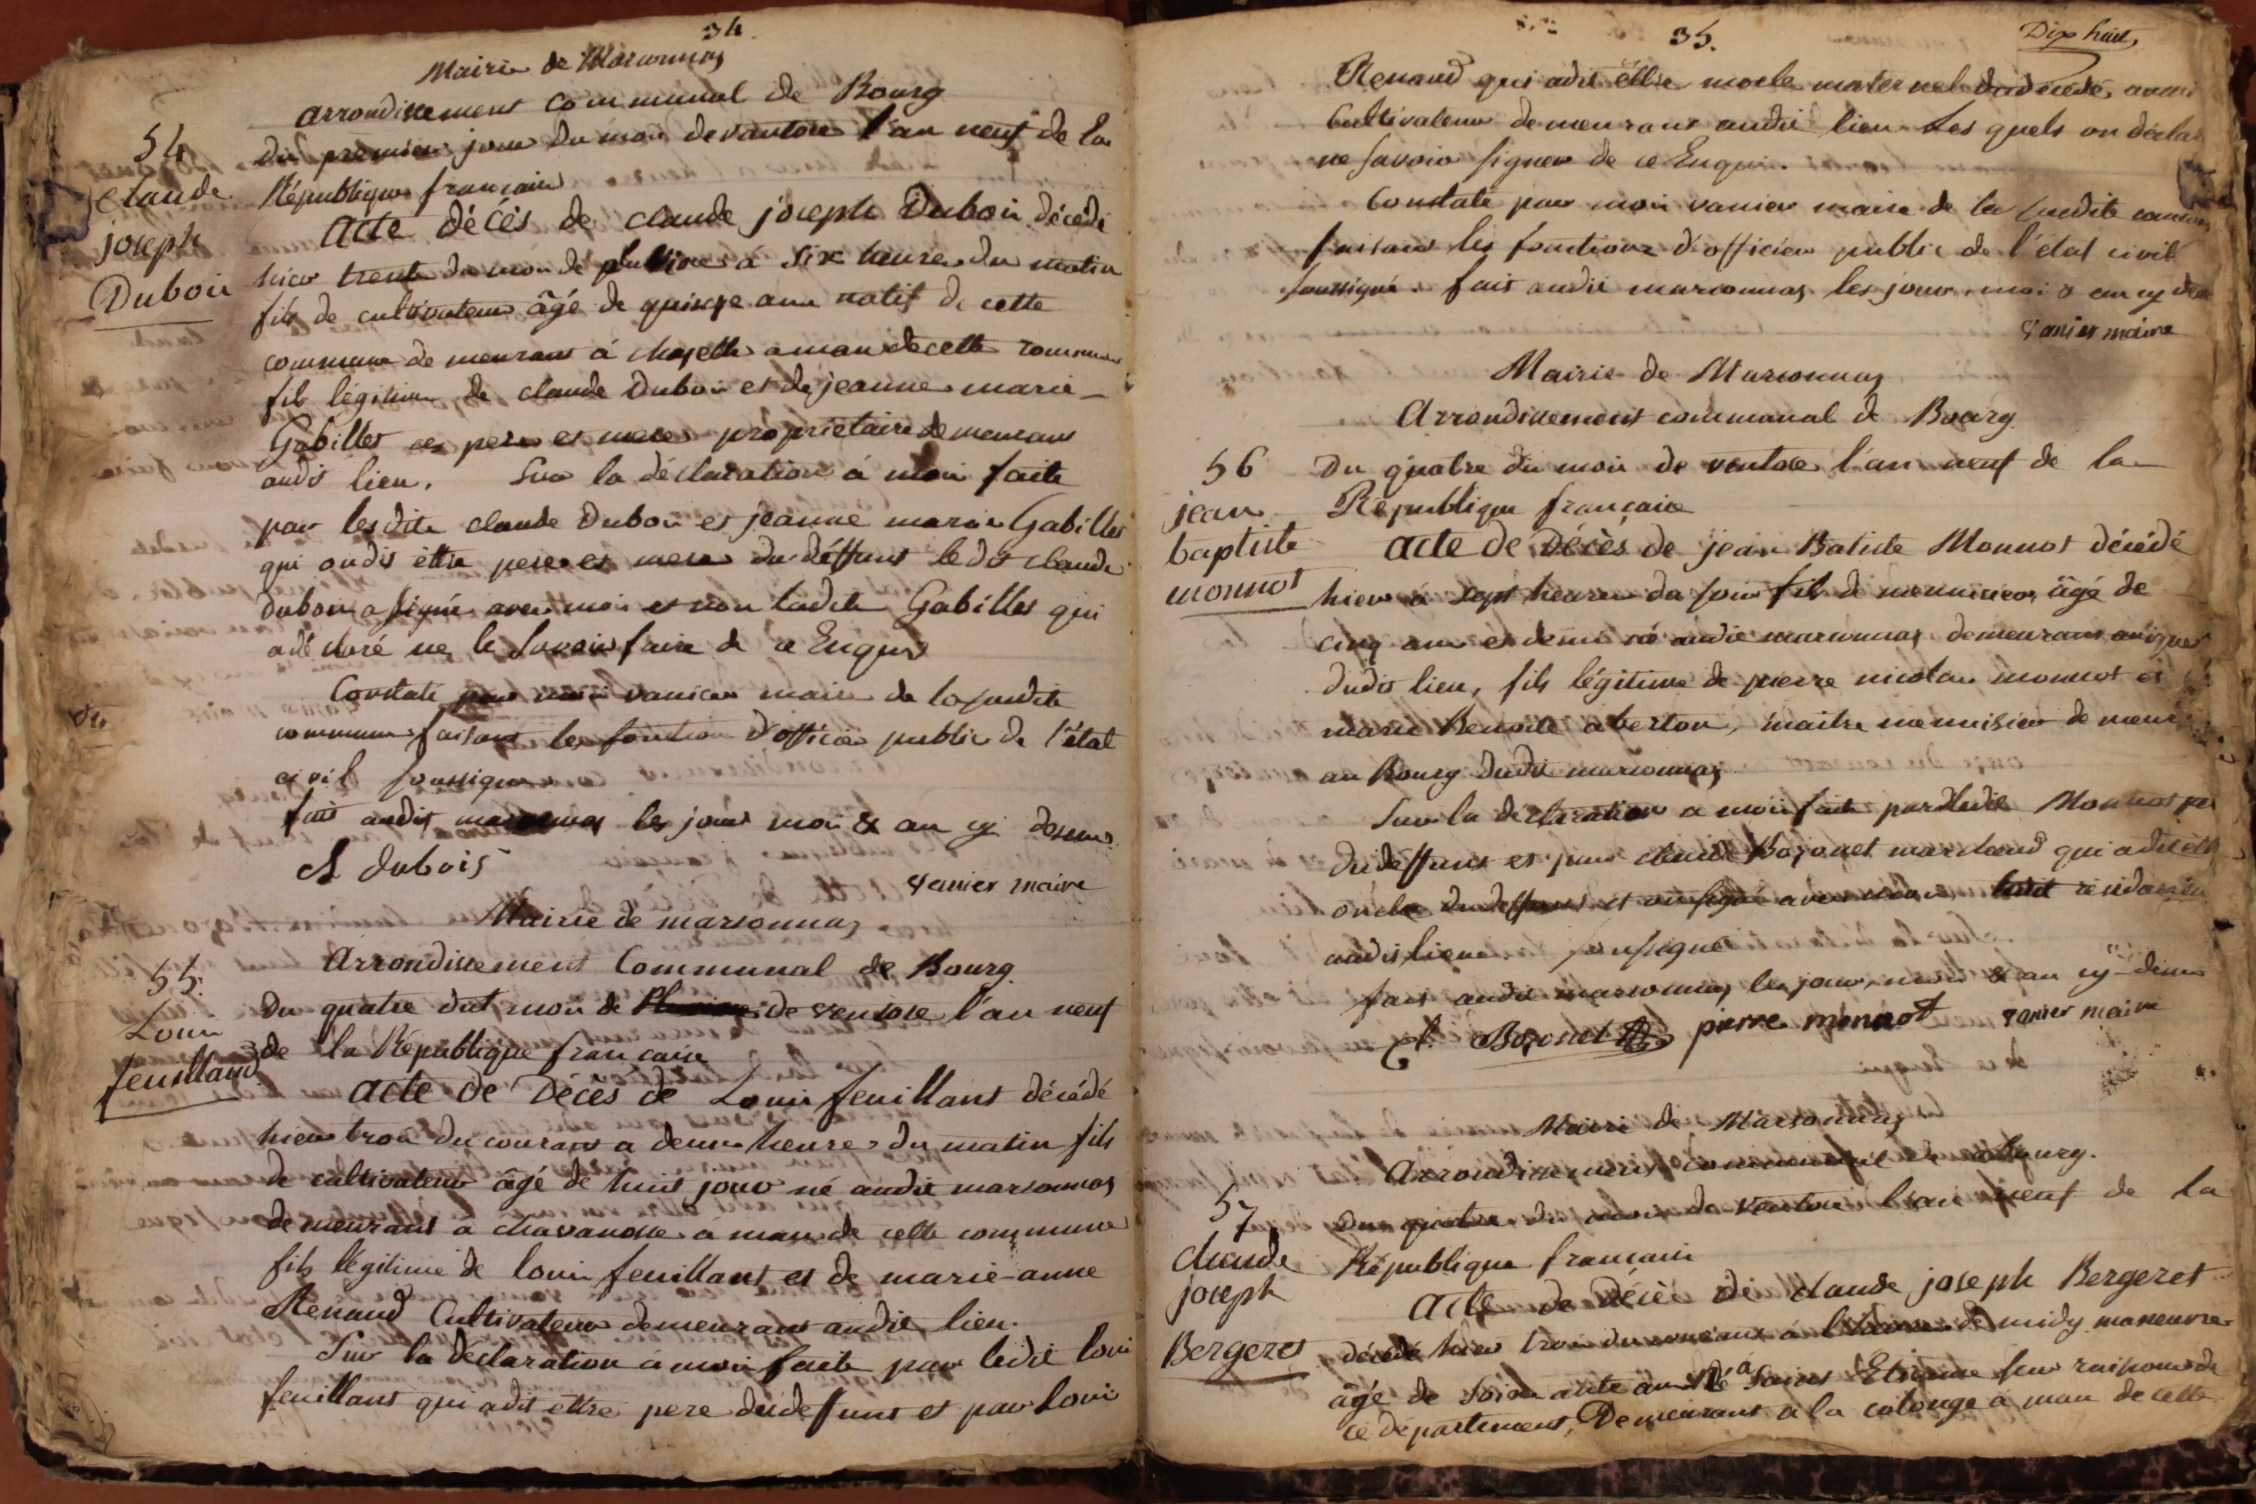 34.
Mairie de Marsonnas
arrondissement communal de Bourg
54
claude
joseph
Duboin
du premier jour du mois de vantose l'an neuf de la
République française
acte décès de claude joseph Duboin décédé
hier trente du mois de pluviose à six heures du matin
fils de cultivateur âgé de quinze ans natif de cette
commune demeurant à chapelle aman de cette commune
fils légitime de claude Duboin et de jeanne marie
Gabillet ses pere et mere propriétaire demeurant
audit lieu. Sur la déclaration à moi faite
par lesdits claude Duboin et jeanne marie Gabillet
qui ondit ettre pere et mere du déffunt ledit claude
duboin a signé avec moi et non ladite Gabillet qui
a déclaré ne le savoir faire de ce Enquis
Constaté par moi vanier maire de la susdite
commune faisant les fonction d'officier public de l'état
civil soussigné
fait audit marsonnas les jours mois & an cy dessus
cl dubois
vanier maire
Mairie de marsonnas
Arrondissement Communal de Bourg
55.
Louis
feuilland
du quatre dut mois de de ventose l'an neuf
de la République française
acte de Décès de Louis feuillant décédé
hier trois du courant a deux heures du matin fils
de cultivateur âgé de huit jour né audit marsonnas
demeurant a chavanosse a man de cette commune
fils légitime de louis feuillant et de marie anne
Renaud Cultivateur demeurant audit lieu.
Sur la déclaration à moi faite par ledit louis
feuillant qui adit ettre pere dudeffunt et par Louis
35.
Dix huit
Renaud qui adit ettre oncle maternel dudécédé, aussi
Cultivateur demeurant audit lieu Les quels on déclaré
ne savoir signer de ce Enquis.
Constaté par moi vanier maire de la susdite commune
faisant les fonctions d'officier public de l'état civil
soussigné. fait audit marsonnas les jour, mois & an cy dessus
vanier maire
Mairie de Marsonnas
Arrondissement communal de Bourg
56
jean
baptiste
monnot
Du quatre du mois de ventose l'an neuf de la
République française
acte de Décès de jean Batiste Monnot décédé
hier à sept heures du soir fils de menuisier, âgé de
cinq ans et demi né audit marsonnas demeurant au
dudit lieu, fils légitime de pierre nicolas monnot et
marie Benoite aberton, maitre menuisier demeurant
au Bourg dudit marsonnas
Sur la déclaration a moi faite par ledit Monnot pere
dudeffunt et par claude Bozonet marchand qui adit être
oncle du deffunt et ont signé avec moi résidant
audit lieu soussigné
fait audit marsonnas les jour, mois & an cy dessus
Cl. Bozonet pierre monnot vanier maire
Mairie de Marsonnas
Arrondissement communal de Bourg.
57
claude
joseph
Bergeret
du quatre du mois de ventose l'an neuf de la
République française
acte de décès de claude joseph Bergeret
décédé hier trois du courant à l'heure de midy maneuvre
âgé de soixante ans né à Saint Etienne sur raissouse de
ce département, Demeurant a la calonge a man de cette